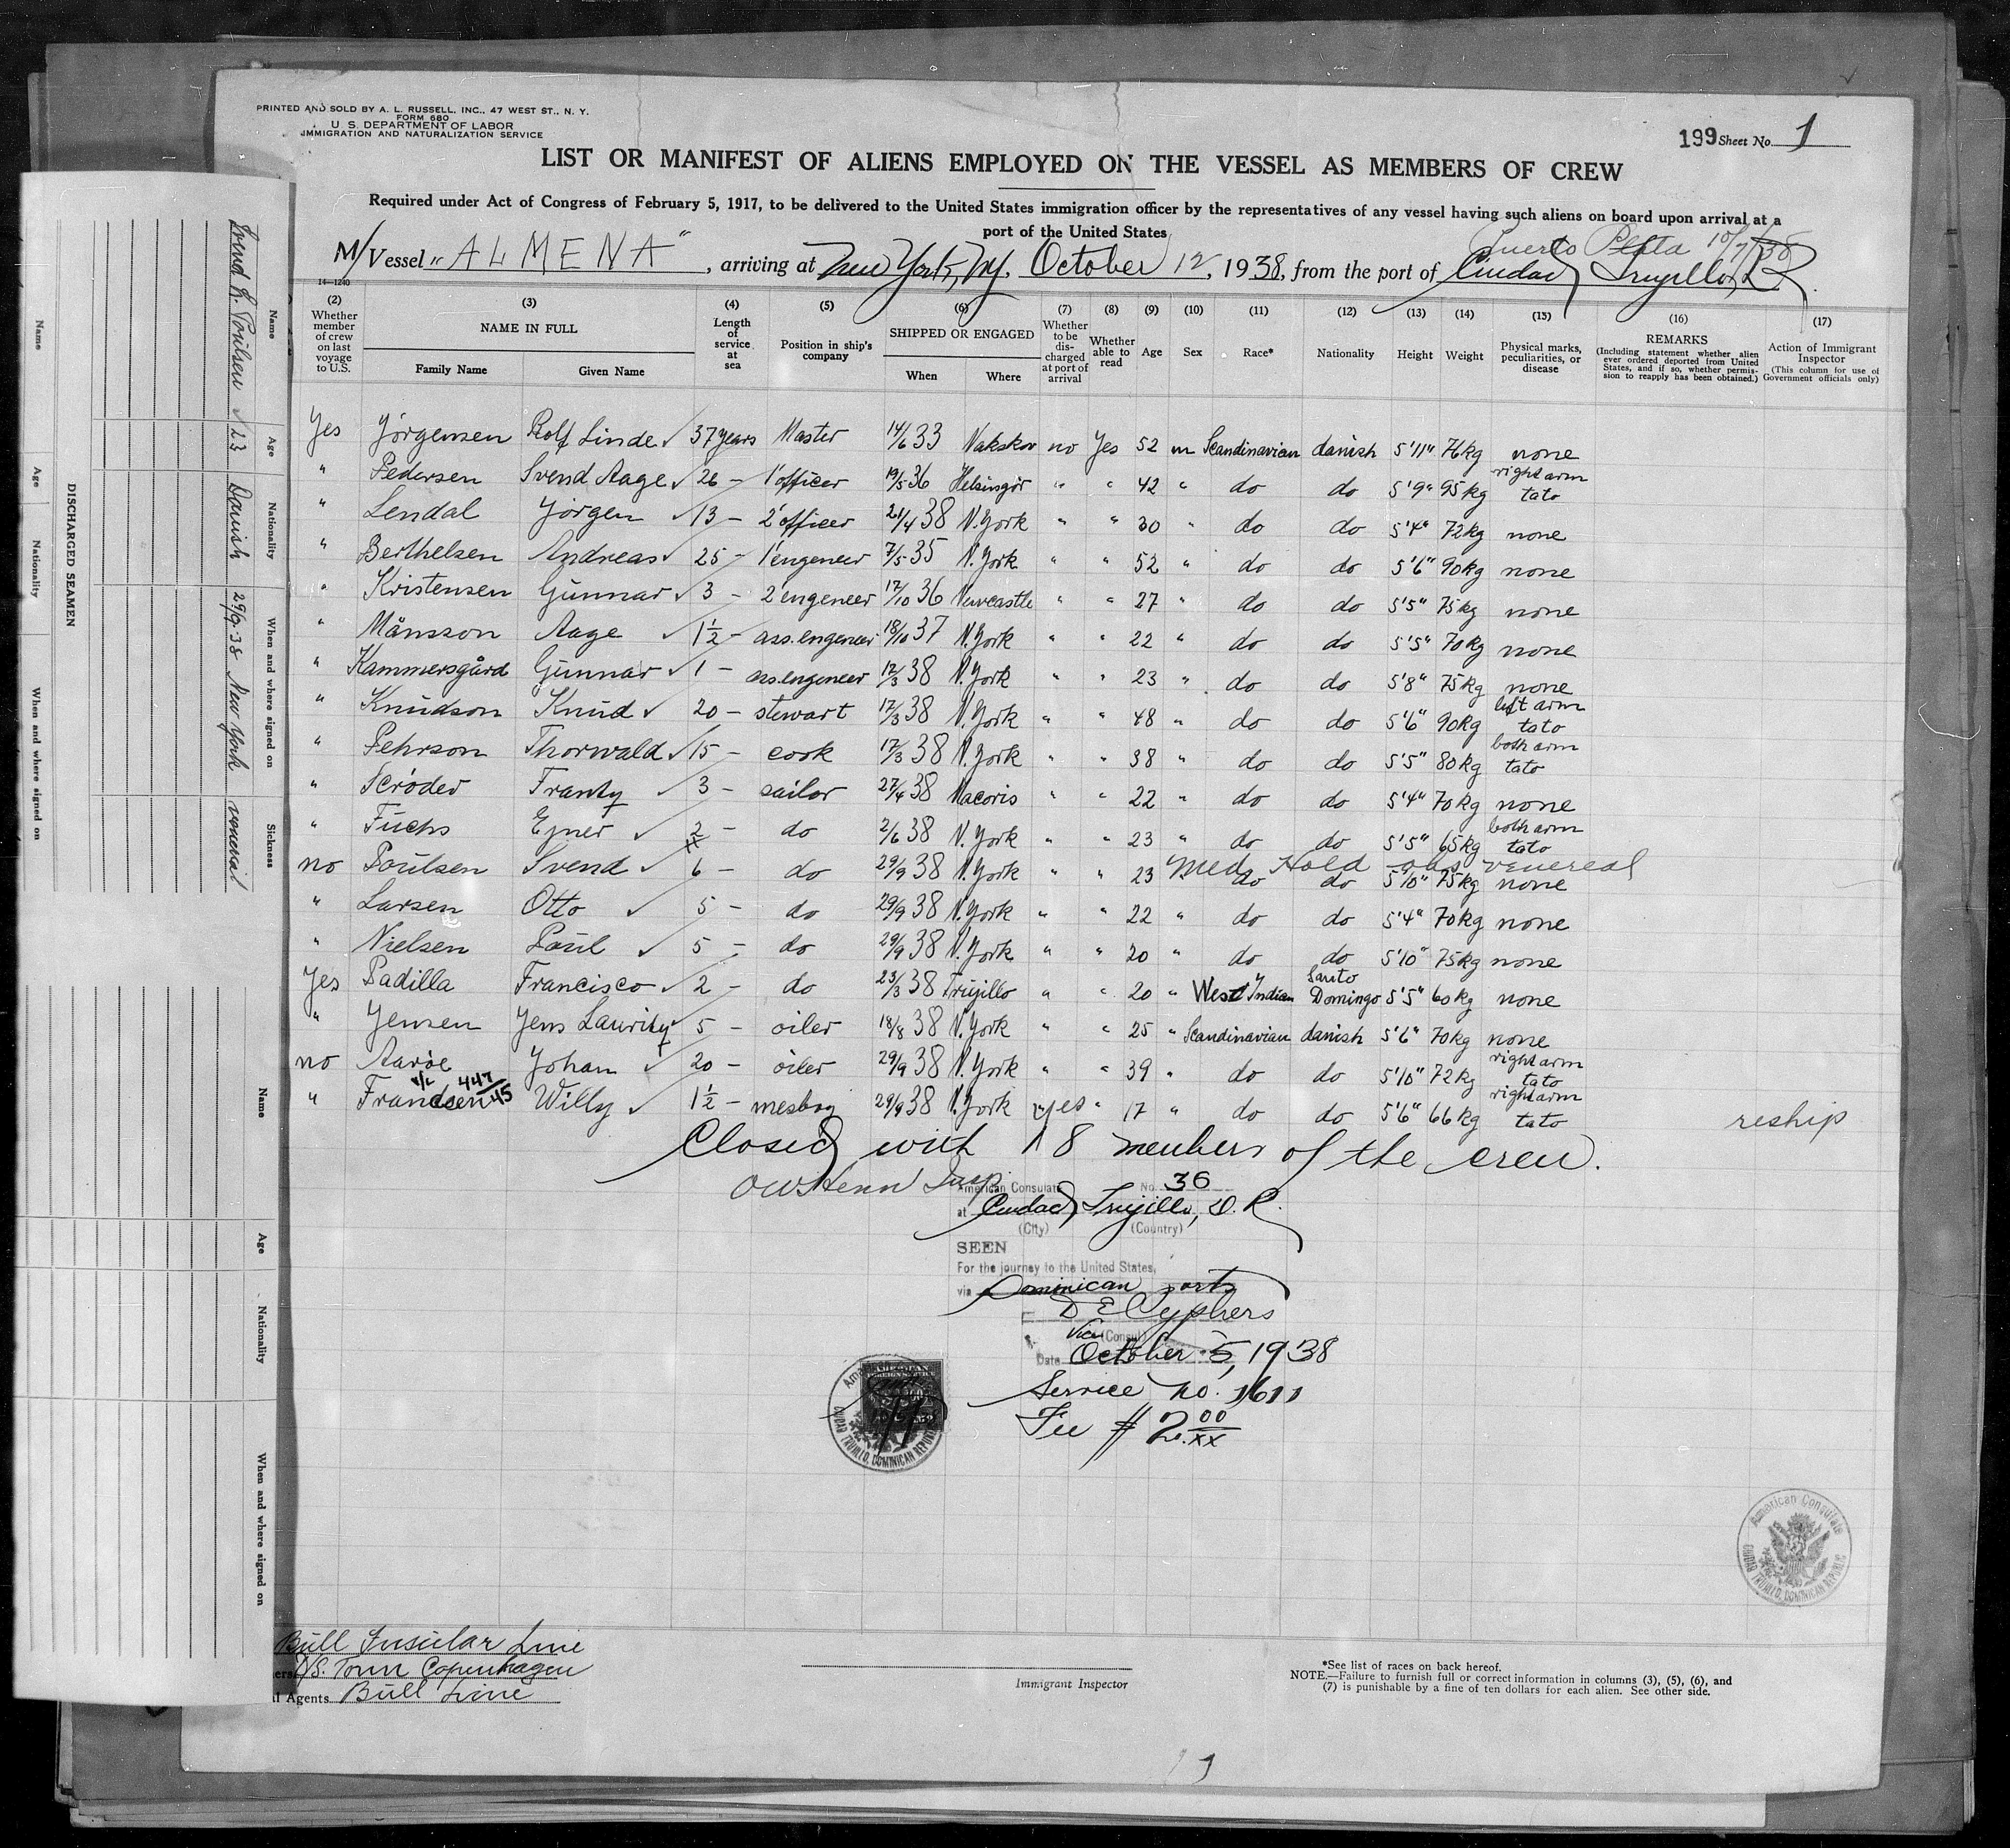 PRINTED AND SOLD BY A. L. RUSSELL, INC., 47 WEST ST., N. Y.
FORM 680
U. S. DEPARTMENT OF LABOR
IMMIGRATION AND NATURALIZATION SERVICE
199 Sheet No. 1
LIST OR MANIFEST OF ALIENS EMPLOYED ON THE VESSEL AS MEMBERS OF CREW
Required under Act of Congress of February 5, 1917, to be delivered to the United States immigration officer by the representatives of any vessel having such aliens on board upon arrival at a
port of the United States
Puerto Plata 10/7/38
M/Vessel "ALMENA", arriving at New York, NY. October 12, 1938, from the port of Ciudad Trujillo, D.R.
14—1240
(2) (3) (4) (5) (6) (7) (8) (9) (10) (11) (12) (13) (14) (15) (16) (17)
Whether member of crew on last voyage to U.S.
NAME IN FULL
Family Name Given Name
Length of service at sea
Position in ship's company
SHIPPED OR ENGAGED
When Where
Whether to be discharged at port of arrival
Whether able to read
Age Sex Race* Nationality Height Weight
Physical marks, peculiarities, or disease
REMARKS
(Including statement whether alien ever ordered deported from United States, and if so, whether permission to reapply has been obtained.)
Action of Immigrant Inspector
(This column for use of Government officials only)
Yes Jörgensen Rolf Linde 37 years Master 14/6 33 Nakskov no Yes 52 m Scandinavian danish 5'11" 76kg none
" Pedersen Svend Aage 26 – 1'officer 19/5 36 Helsingör " " 42 " do do 5'9" 95kg right arm tato
" Lendal Jörgen 13 – 2'officer 21/4 38 N.York " " 30 " do do 5'4" 72kg none
" Berthelsen Andreas 25 – 1'engeneer 7/5 35 N.York " " 52 " do do 5'6" 90kg none
" Kristensen Gunnar 3 – 2'engeneer 17/10 36 Newcastle " " 27 " do do 5'5" 75kg none
" Månsson Aage 1½ – ass.engeneer 18/10 37 N.York " " 22 " do do 5'5" 70kg none
" Kammersgård Gunnar 1 – ass.engeneer 12/3 38 N.York " " 23 " do do 5'8" 75kg none
" Knudson Knud 20 – stewart 17/3 38 N.York " " 48 " do do 5'6" 90kg left arm tato
" Pehrson Thorwald 15 – cook 17/3 38 N.York " " 38 " do do 5'5" 80kg both arm tato
" Scröder Frantz 3 – sailor 27/4 38 Macoris " " 22 " do do 5'4" 70kg none
" Fuchs Ejner 2 – do 2/6 38 N.York " " 23 " do do 5'5" 65kg both arm tato
Med Hold obs venereal
no Poulsen Svend 6 – do 29/9 38 N.York " " 23 do do 5'10" 75kg none
" Larsen Otto 5 – do 29/9 38 N.York " " 22 " do do 5'4" 70kg none
" Nielsen Poul 5 – do 29/9 38 N.York " " 20 " do do 5'10" 75kg none
Yes Padilla Francisco 2 – do 23/3 38 Trujillo " " 20 " West Indian Santo Domingo 5'5" 60kg none
" Jensen Jens Lauritz 5 – oiler 18/8 38 N.York " " 25 " Scandinavian danish 5'6" 70kg none
no Aaröe Johan 20 – oiler 29/9 38 N.York " " 39 " do do 5'10" 72kg right arm tato
447/45
" Frandsen Willy 1½ – mesboy 29/9 38 N.York yes " 17 " do do 5'6" 66kg right arm tato reship
Closed with 18 members of the crew.
American Consulate No. 36
at Ciudad Trujillo, D.R.
(City) (Country)
SEEN
For the journey to the United States,
via Dominican ports
D E Cyphers
Vice (Consul)
Date October 5, 1938
Service no. 1611
Fee # 2.00/xx
CIUDAD TRUJILLO, DOMINICAN REPUBLIC
American Consulate
CIUDAD TRUJILLO, DOMINICAN REPUBLIC
Bull Insular Line
D/S. Torm Copenhagen
Agents Bull Line
Immigrant Inspector
*See list of races on back hereof.
NOTE.—Failure to furnish full or correct information in columns (3), (5), (6), and
(7) is punishable by a fine of ten dollars for each alien. See other side.
DISCHARGED SEAMEN
Name Age Nationality When and where signed on Sickness
Svend Poulsen 23 Danish 29/9-38 New York veneral
Name Age Nationality When and where signed on
Name Age Nationality When and where signed on